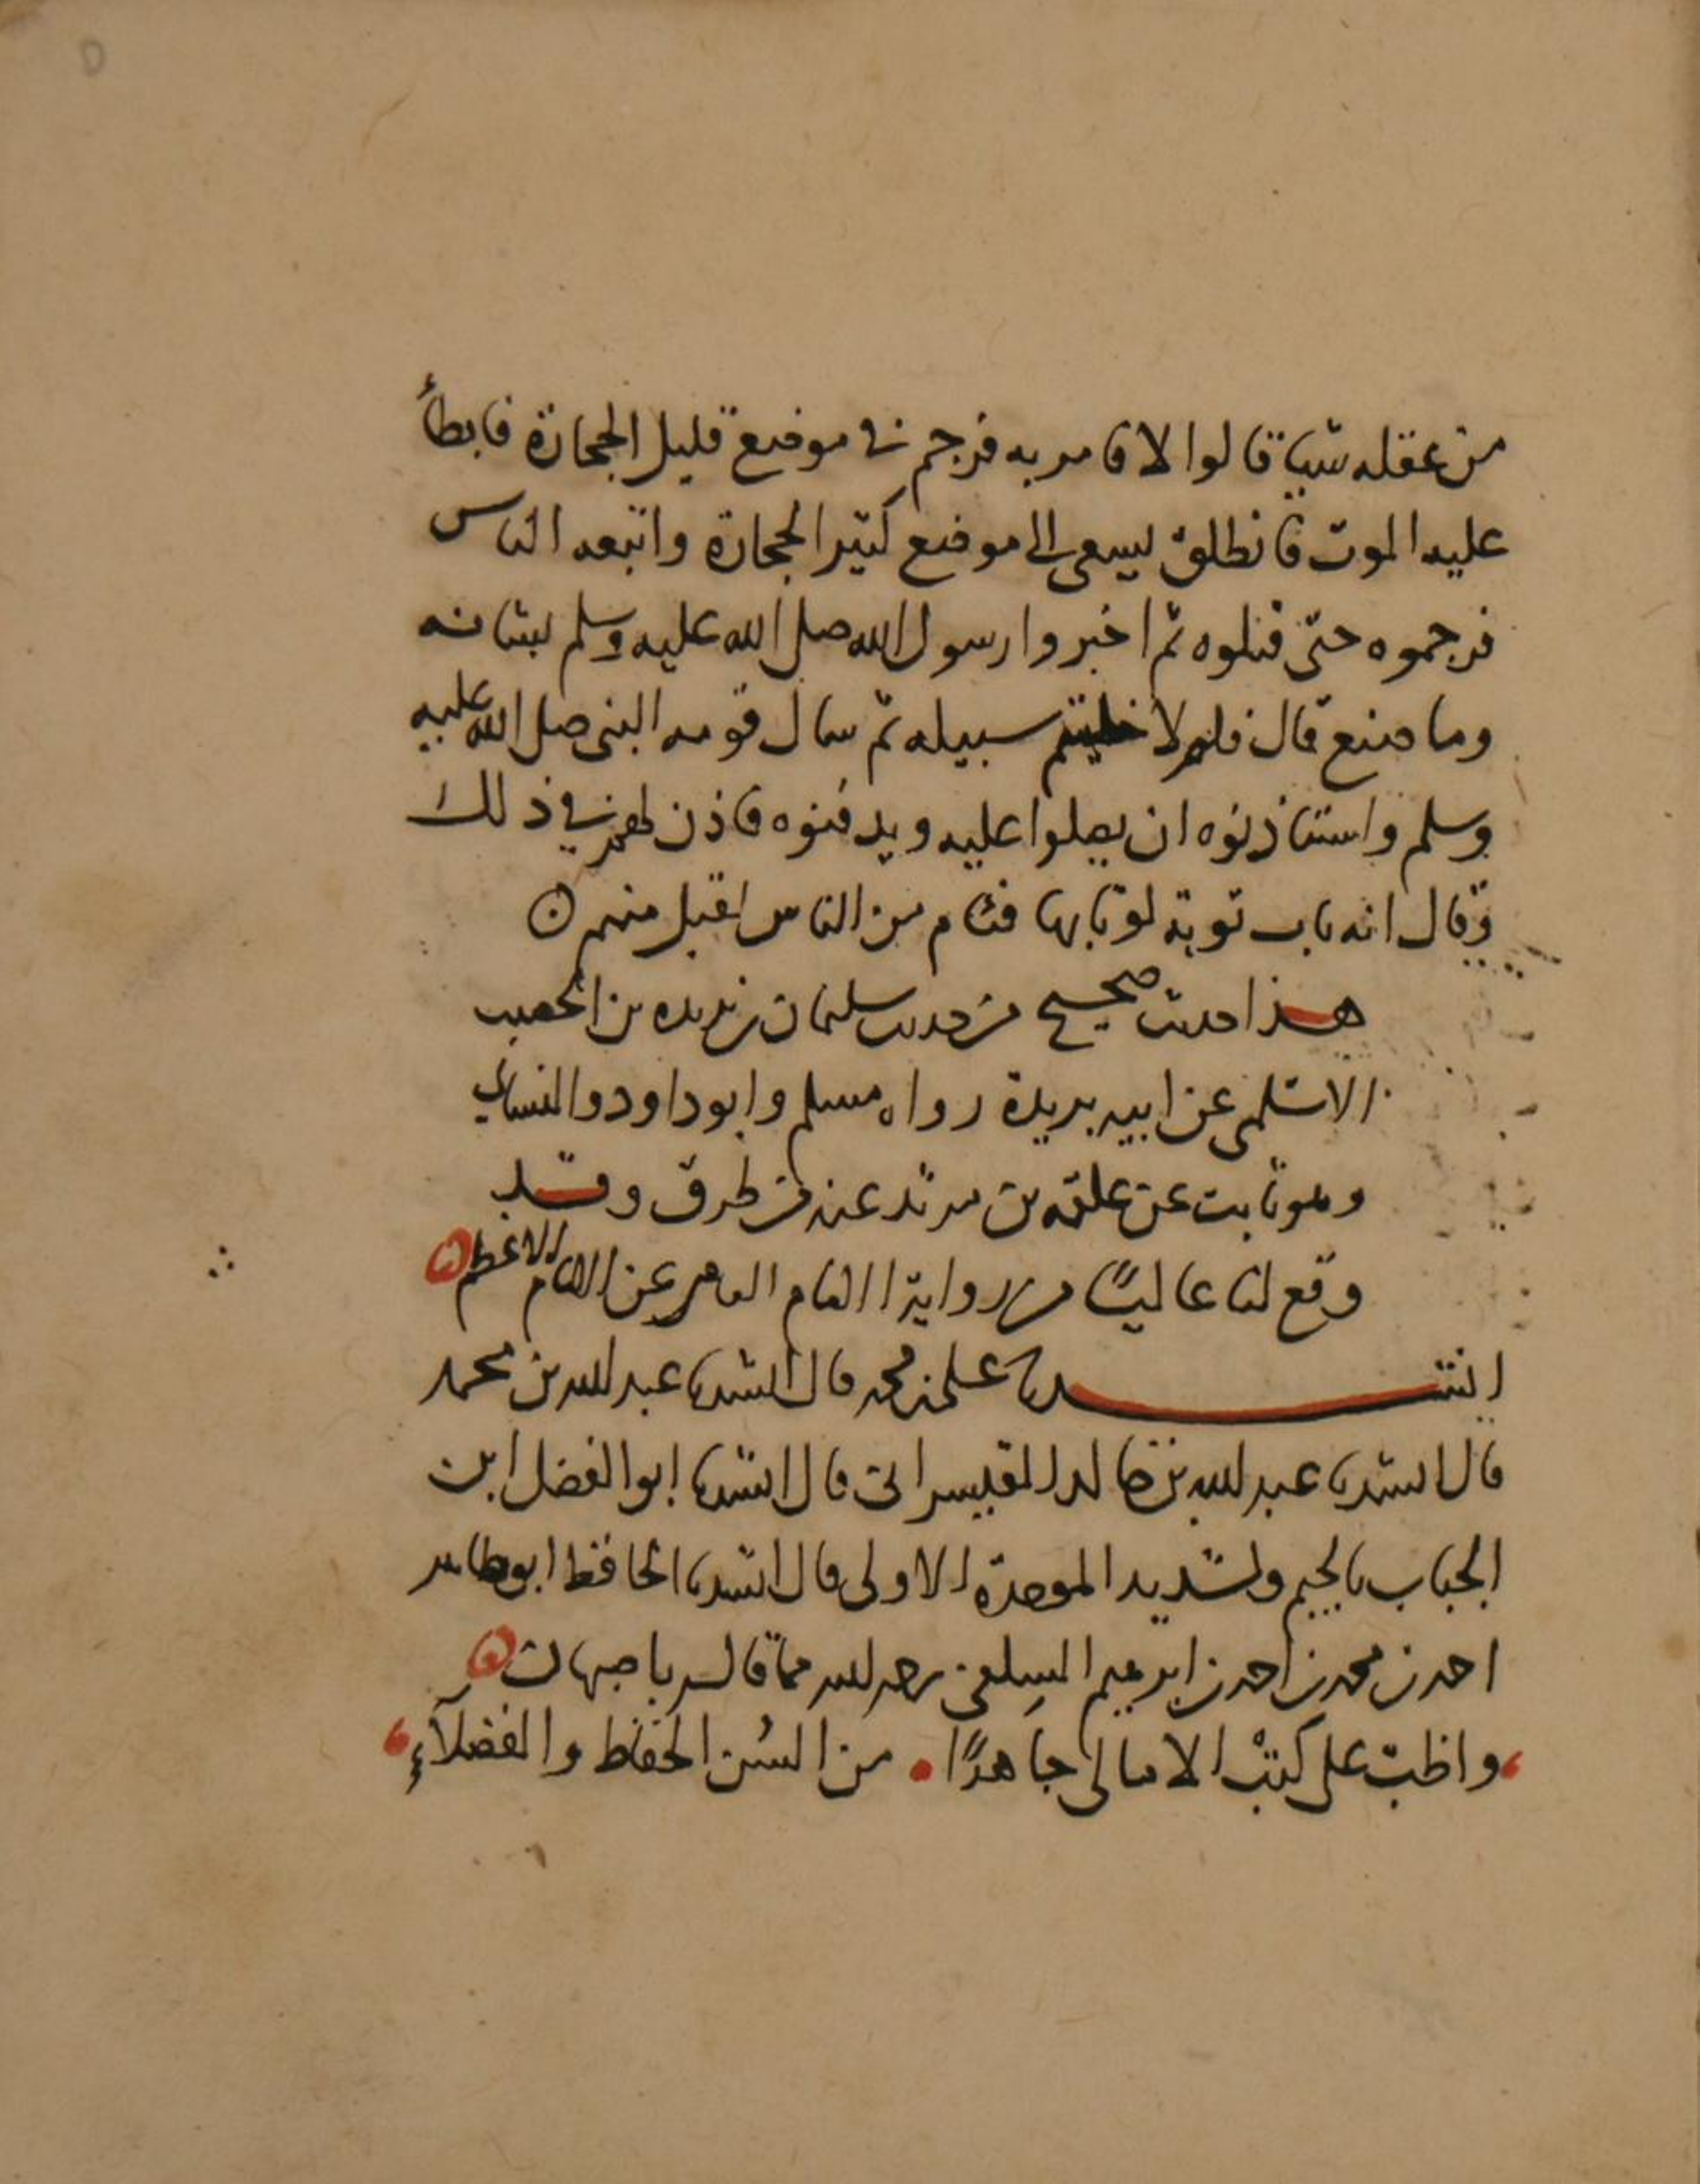 من عقله شيا قالوا لا فامر به فرجم في موضع قليل الحجارة فابطأ
عليه الموت فانطلق ليسعى الى موضع كثير الحجارة واتبعه الناس
فرجموه حتى قتلوه ثم اخبروا رسول الله صلى الله عليه وسلم بشانه
وما صنع قال فلولا خليتم سبيله ثم سال قومه النبي صلى الله عليه
وسلم واستاذنوه ان يصلوا عليه ويدفنوه فاذن لهم في ذلك
وقال انه تاب توبة لو تابها فئام من الناس لقبل منهم
هذا حديث صحيح من حديث سليمان بن بريده بن الحصيب
الاسلمي عن ابيه بريدة رواه مسلم وابوداود والنسائي
وهو ثابت عن علقمه بن مرثد عنه من طرق وقد
وقع لنا عاليًا من رواية الامام عن الامام الاعظم
انشدنا علي بن محمد قال انشدنا عبد الله بن محمد
قال انشدنا عبد الله بن خالد القيسراني قال انشدنا ابو الفضل ابن
الجباب بالجيم وتشديد الموحدة الاولى قال انشدنا الحافظ ابو طاهر
احمد بن محمد بن احمد بن ابرهيم السلفي رحمه الله مما قاله باصبهان
واظبت على كتب الامالي جاهدًا من السن الحفاظ والفضلاء